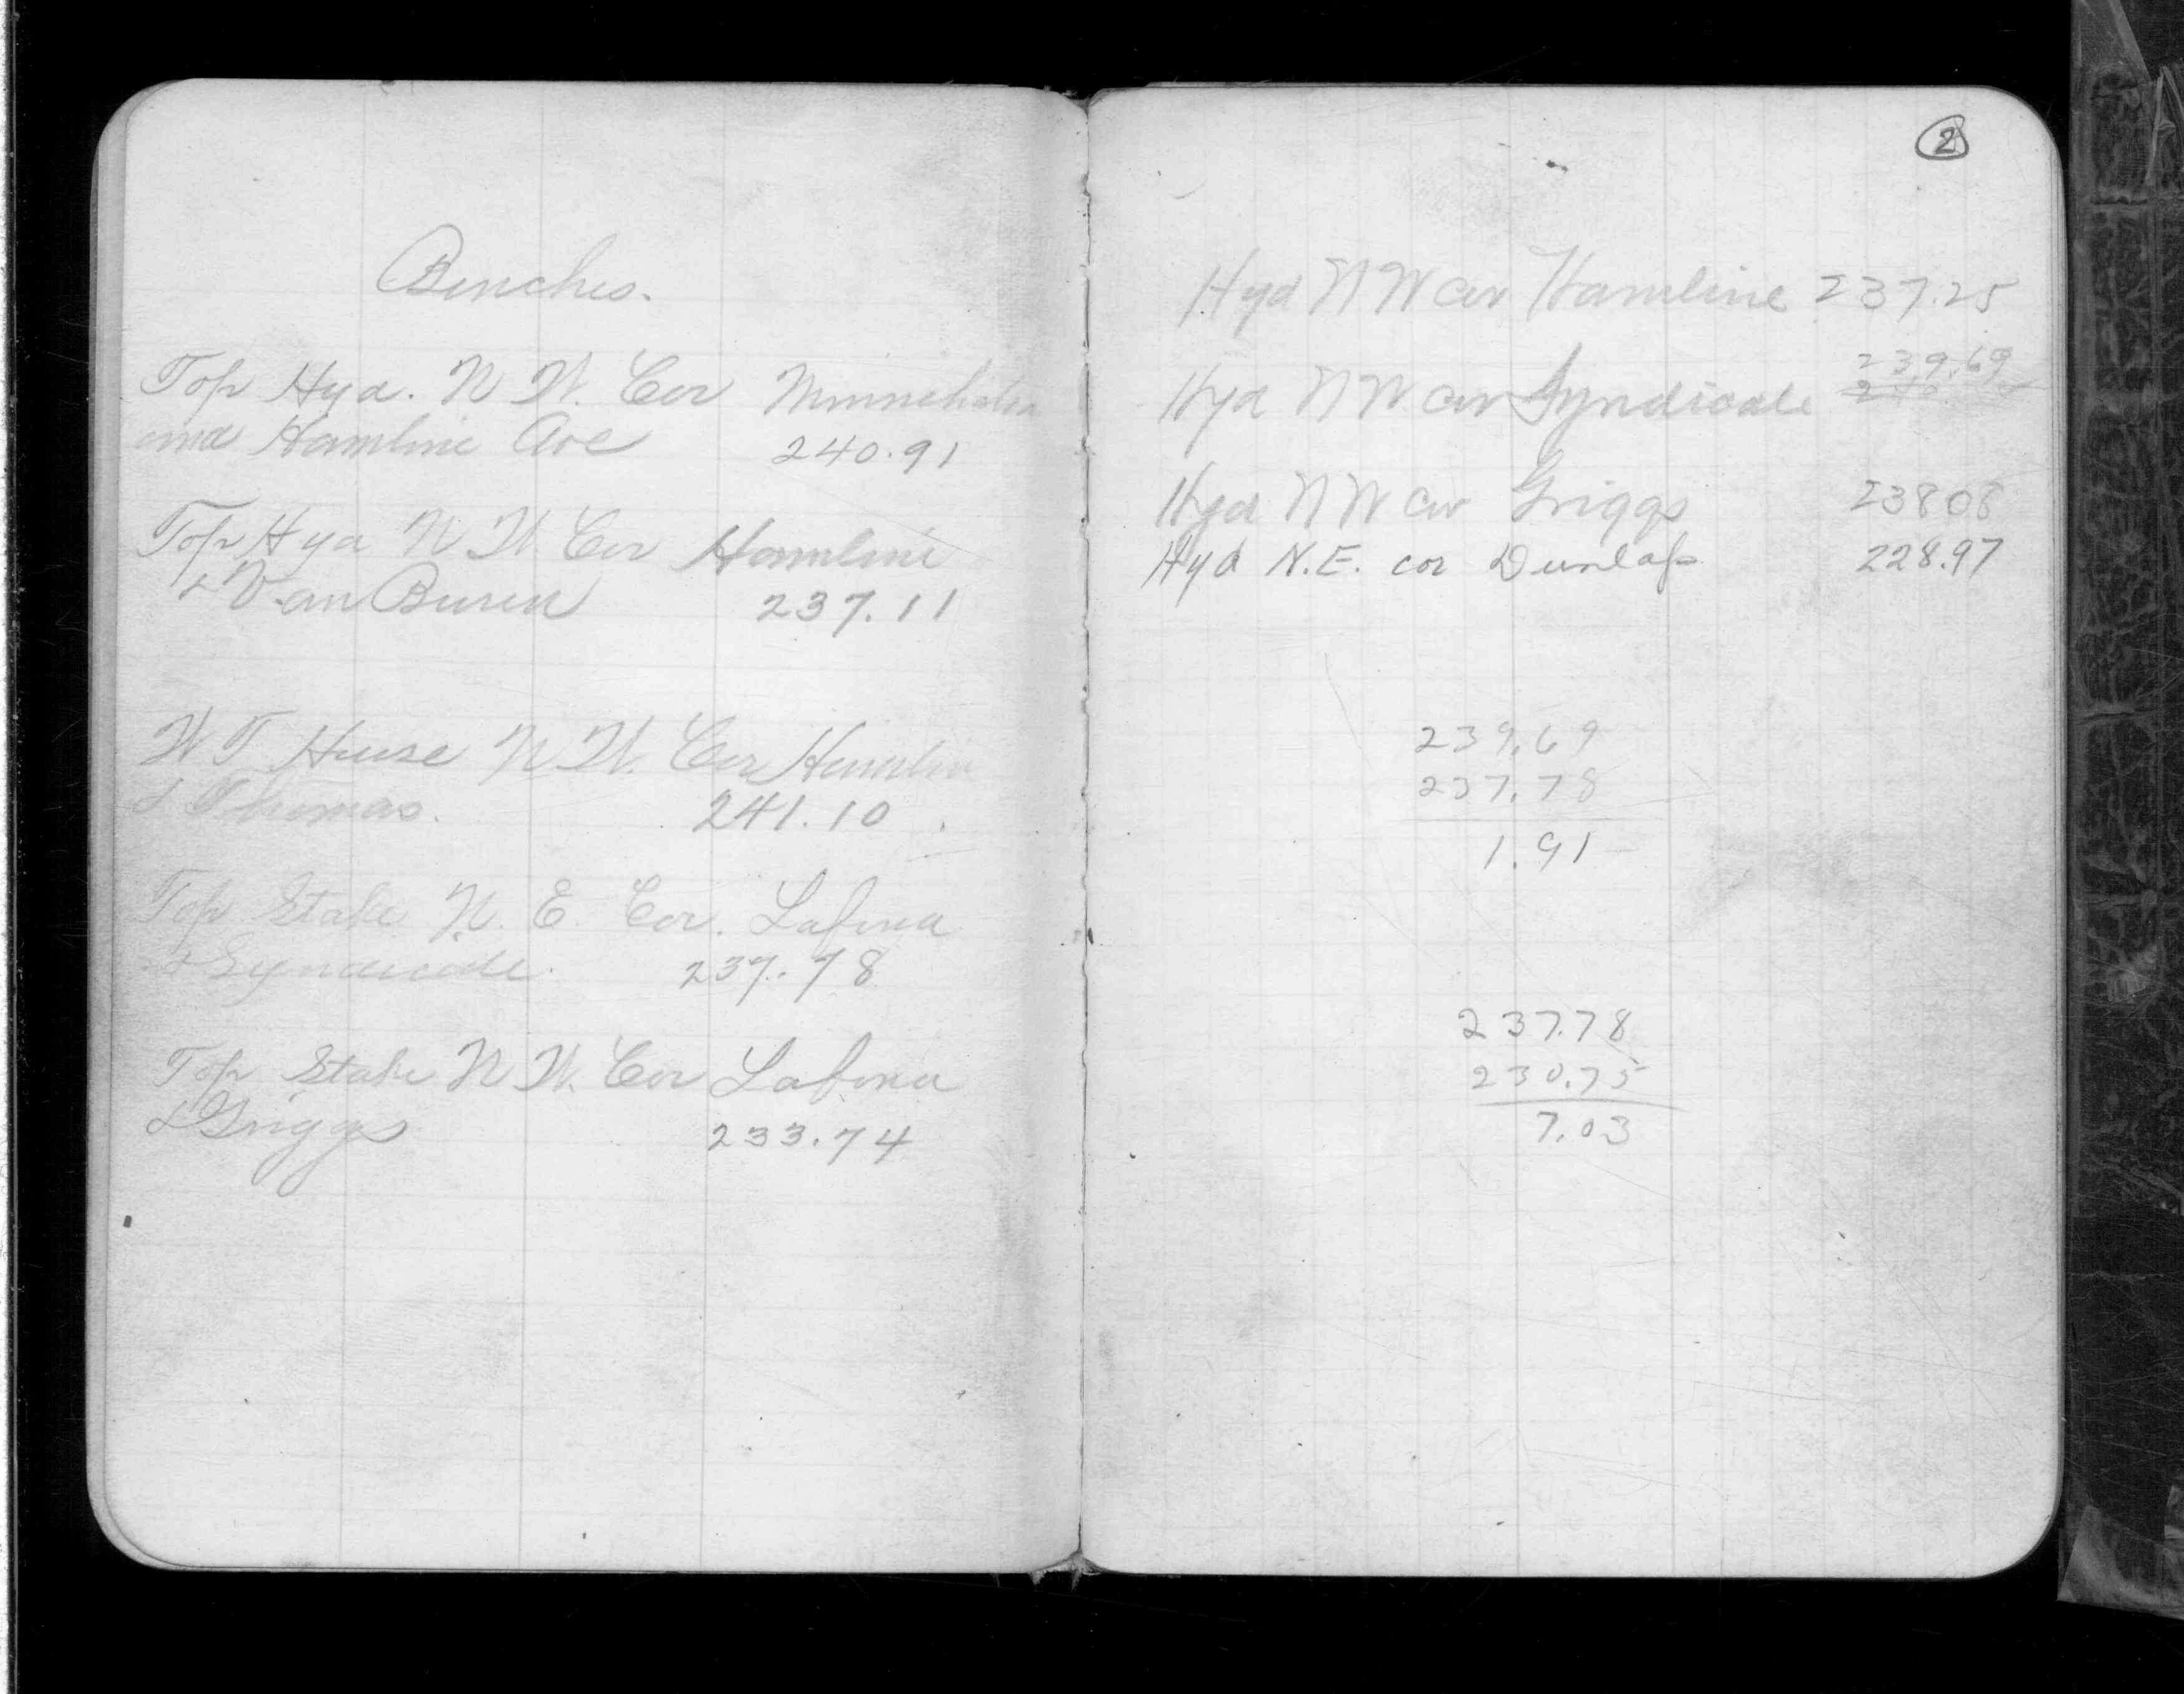 Benches.
Top Hyd. N W. Cor Minnehaha
and Hamline Ave 240.91
Top Hyd N W. Cor Hamline
& Van Buren 237.11
W T House N W. Cor Hamline
& Thomas. 241.10
Top Stake N. E. Cor. Lafona
& Syndicate. 237.78
Top Stake N W. Cor Lafona
& Griggs 233.74
2
Hyd N W cor Hamline 237.25
239.69
Hyd N W cor Syndicate
Hyd N W cor Griggs 238 08
Hyd N.E. cor Dunlap 228.97
239.69
237.78
1.91
237.78
230.75
7.03